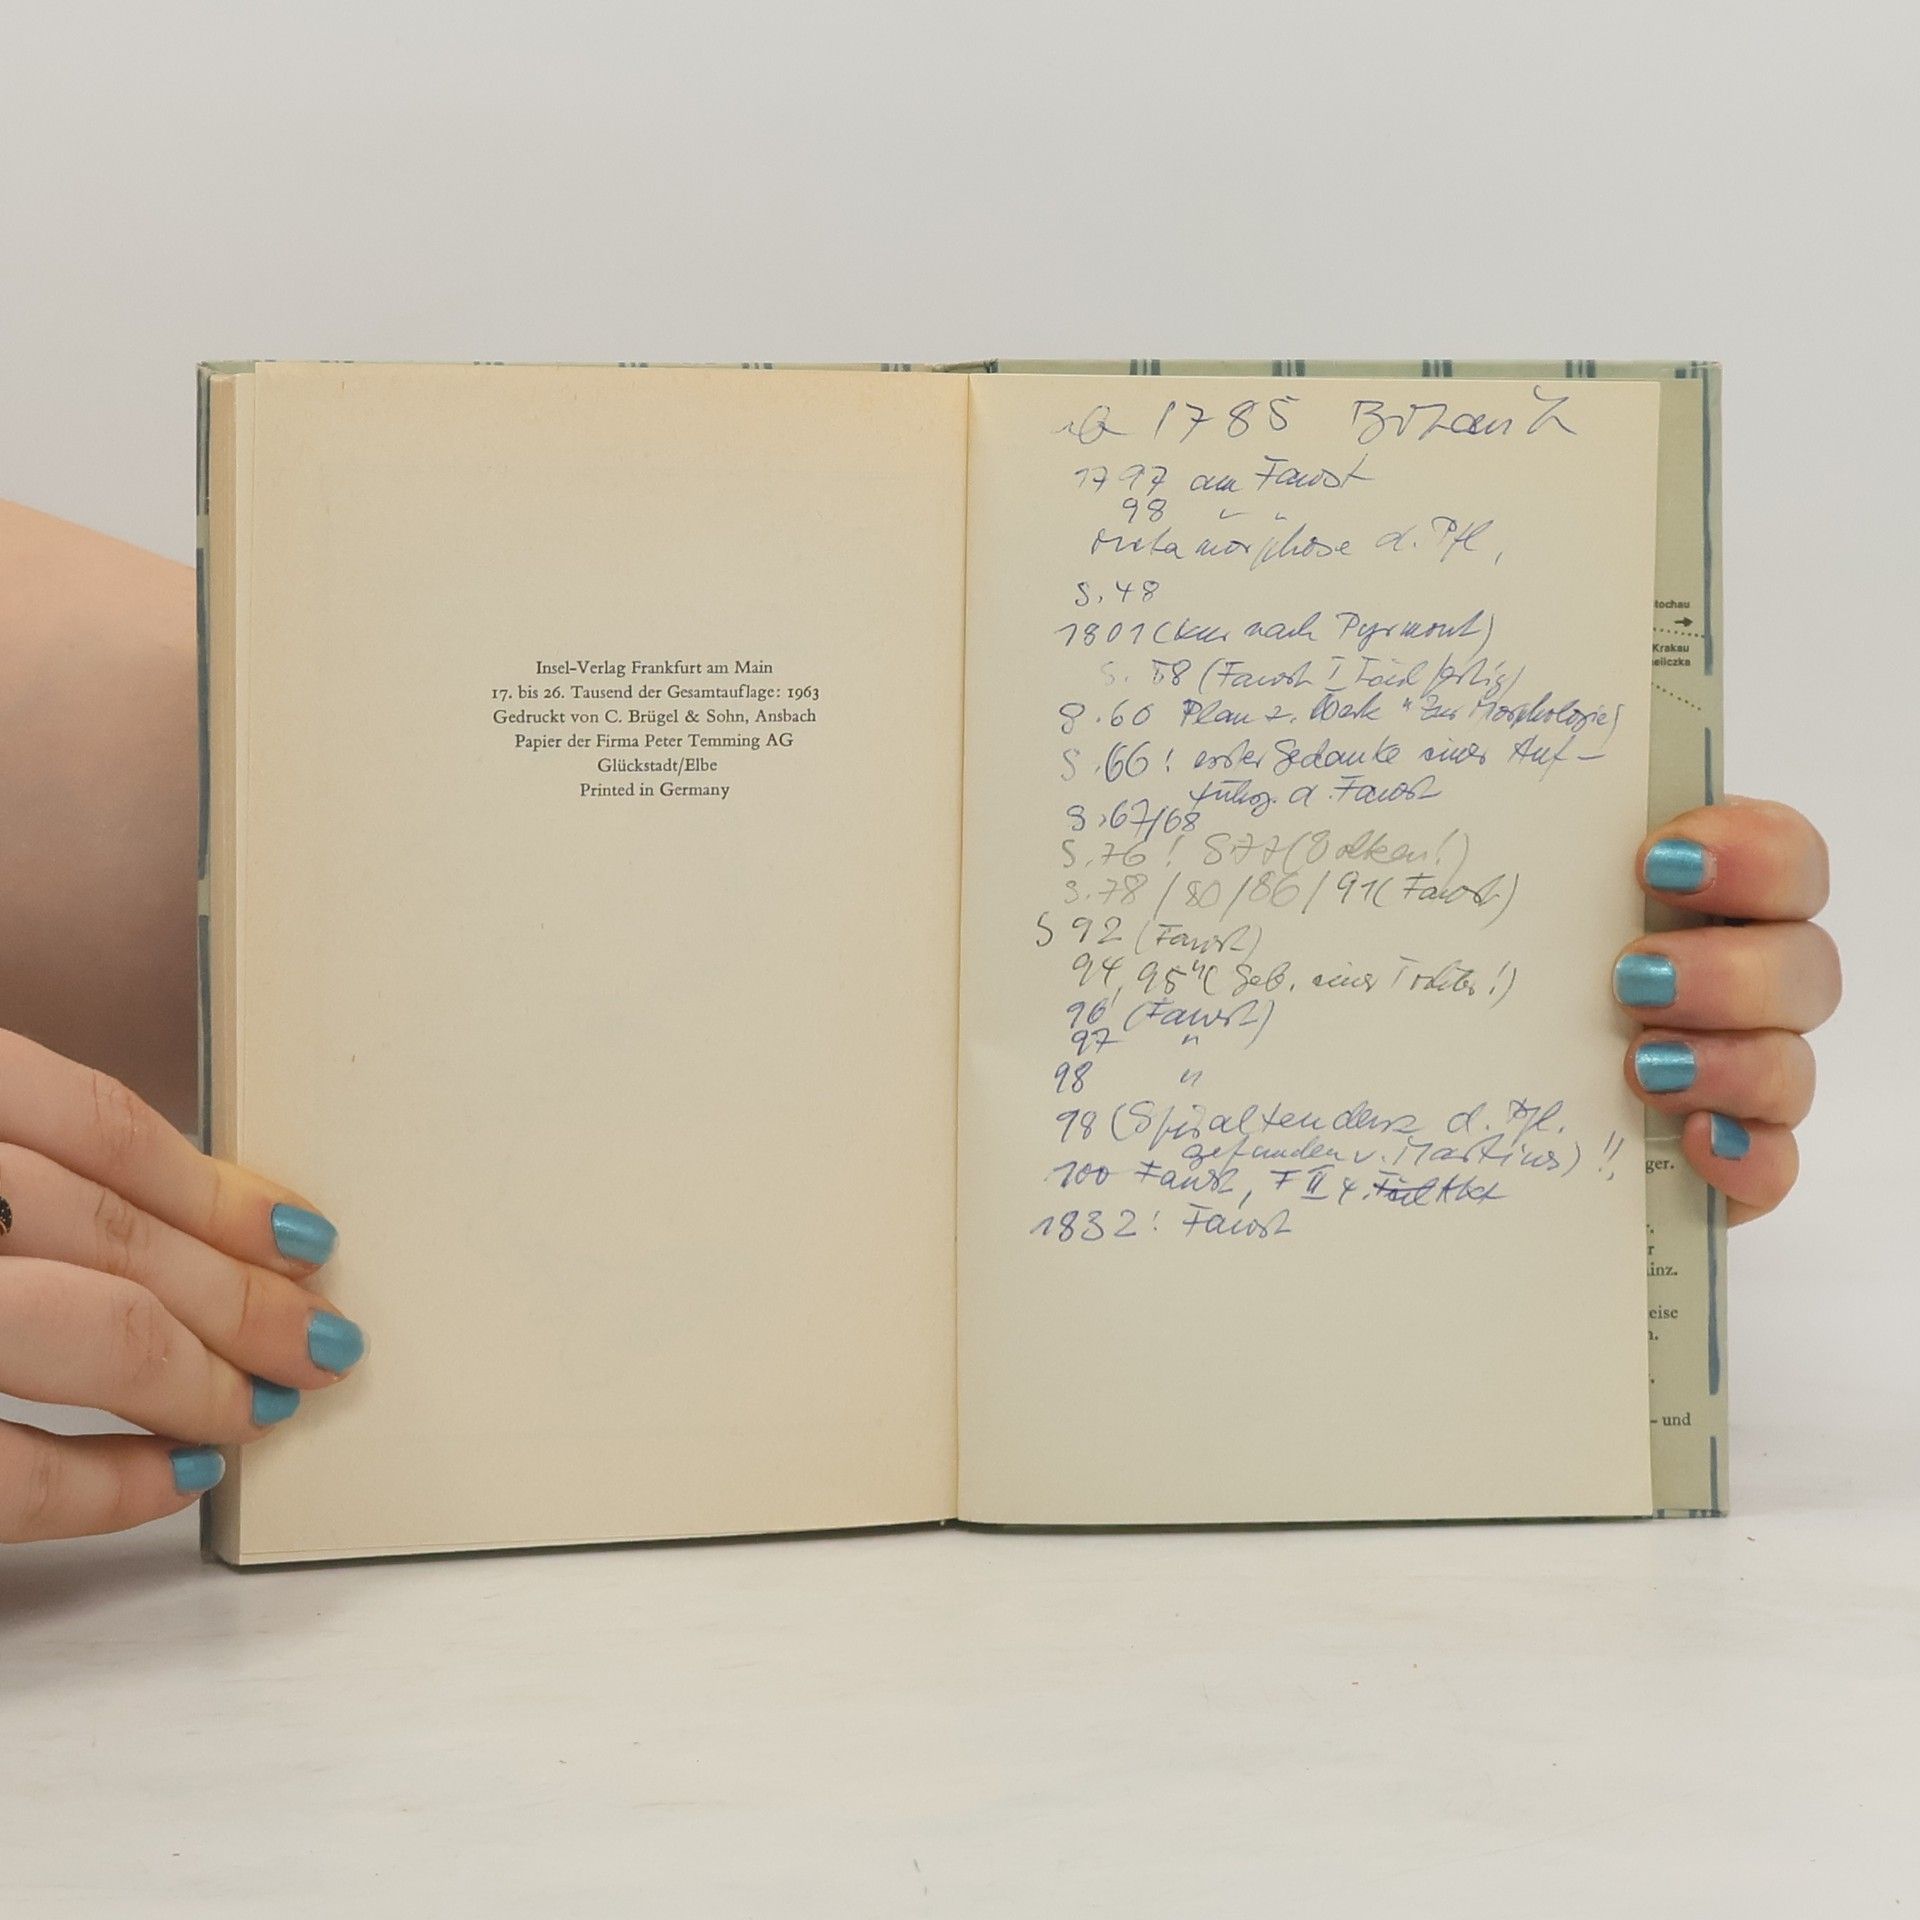 Insel-Verlag Frankfurt am Main
17. bis 26. Tausend der Gesamtauflage: 1963
Gedruckt von C. Brügel & Sohn, Ansbach
Papier der Firma Peter Temming AG
Glückstadt/Elbe
Printed in Germany
ab 1785 Botanik
1797 am Faust
98 " "
Metamorphose d. Pfl,
S. 48
1801 (Kur nach Pyrmont)
S. 58 (Faust I Teil fertig)
S. 60 Plan z. Werk "Zur Morphologie"
S. 66! erster Gedanke einer Auf-
führg. d. Faust
S. 67/68
S. 76! S 77 (Wolken!)
S. 78/80/86/91 (Faust)
S 92 (Faust)
94, 95 (Geb. einer Tochter!)
96 (Faust)
97 "
98 "
98 (Spiraltendenz d. Pfl.
gefunden v. Martius)!!
100 Faust, F II 4. Teil Akt
1832! Faust
tochau
Krakau
eliczka
ger.
r
inz.
eise
n.
- und